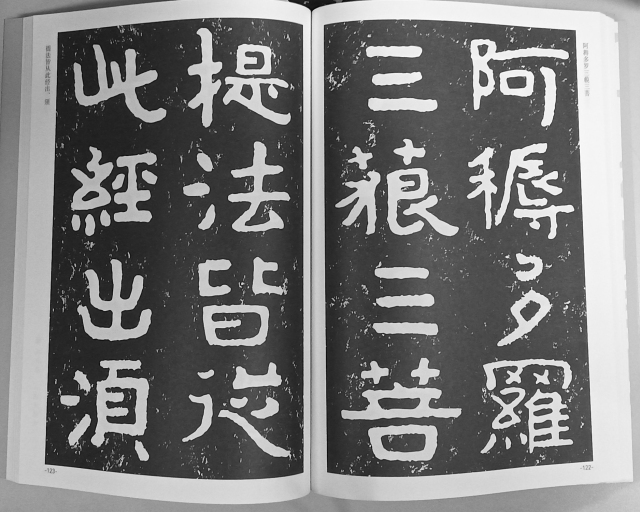 阿耨多羅
三藐三菩
提法皆從
此經出須
-122-
-123-